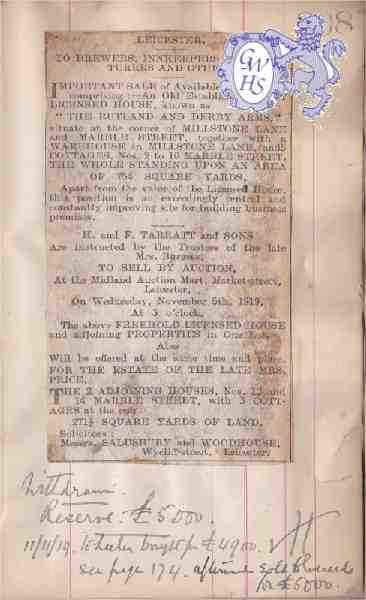 LEICESTER.
TO BREWERS, INNKEEPERS,
TURERS AND OTH
IMPORTANT SALE of Available
comprising:—An Old Establ
LICENSED HOUSE, known as
"THE RUTLAND AND DERBY ARMS,"
situate at the corner of MILLSTONE LANE
and MARBLE STREET, together with a
WAREHOUSE in MILLSTONE LANE, and
COTTAGES, Nos. 2 to 16 MARBLE STREET,
THE WHOLE STANDING UPON AN AREA
OF SQUARE YARDS.
Apart from the value of the Licensed House,
this position is an exceedingly central and
constantly improving site for building business
premises.
H. and F. TARRATT and SONS
Are instructed by the Trustees of the late
Mrs. Burgess,
TO SELL BY AUCTION,
At the Midland Auction Mart, Market-street,
Leicester,
On Wednesday, November 5th, 1919,
At 5 o'clock,
The above FREEHOLD LICENSED HOUSE
and adjoining PROPERTIES in One Lot.
Also
Will be offered at the same time and place,
FOR THE ESTATE OF THE LATE MRS.
PRICE,
THE 2 ADJOINING HOUSES, Nos. 12 and
14 MARBLE STREET, with 3 COTT-
AGES at the rear
271½ SQUARE YARDS OF LAND.
Solicitors:
Messrs. SALUSBURY and WOODHOUSE,
Leicester.
GWHS
98
Withdrawn
Reserve: £5000.
11/11/19. bought for £4900.
see page 174. afterwards sold
for £6000.